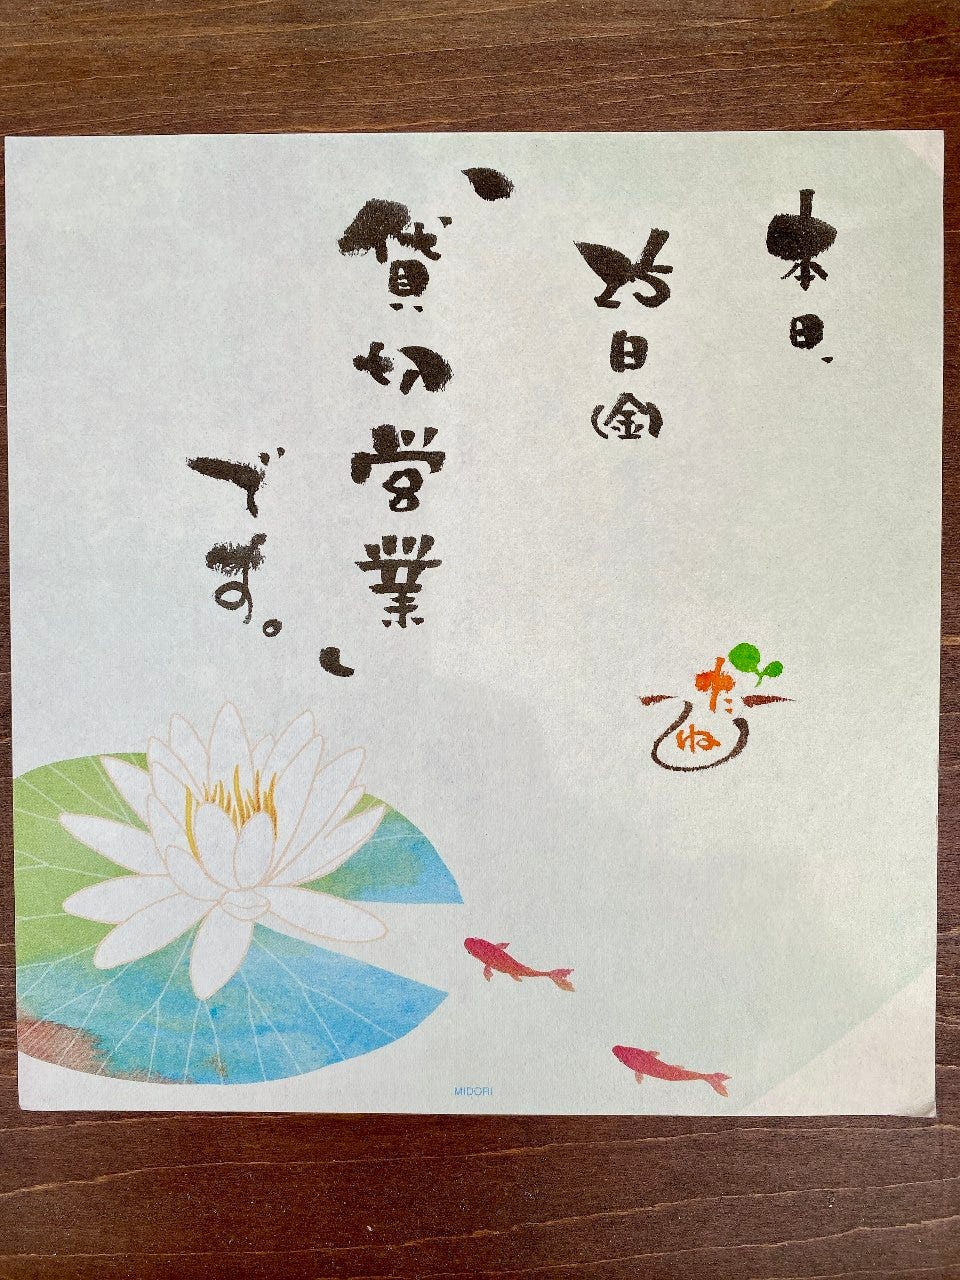 本日、
25日㈮
貸切営業
です。
たね
MIDORI